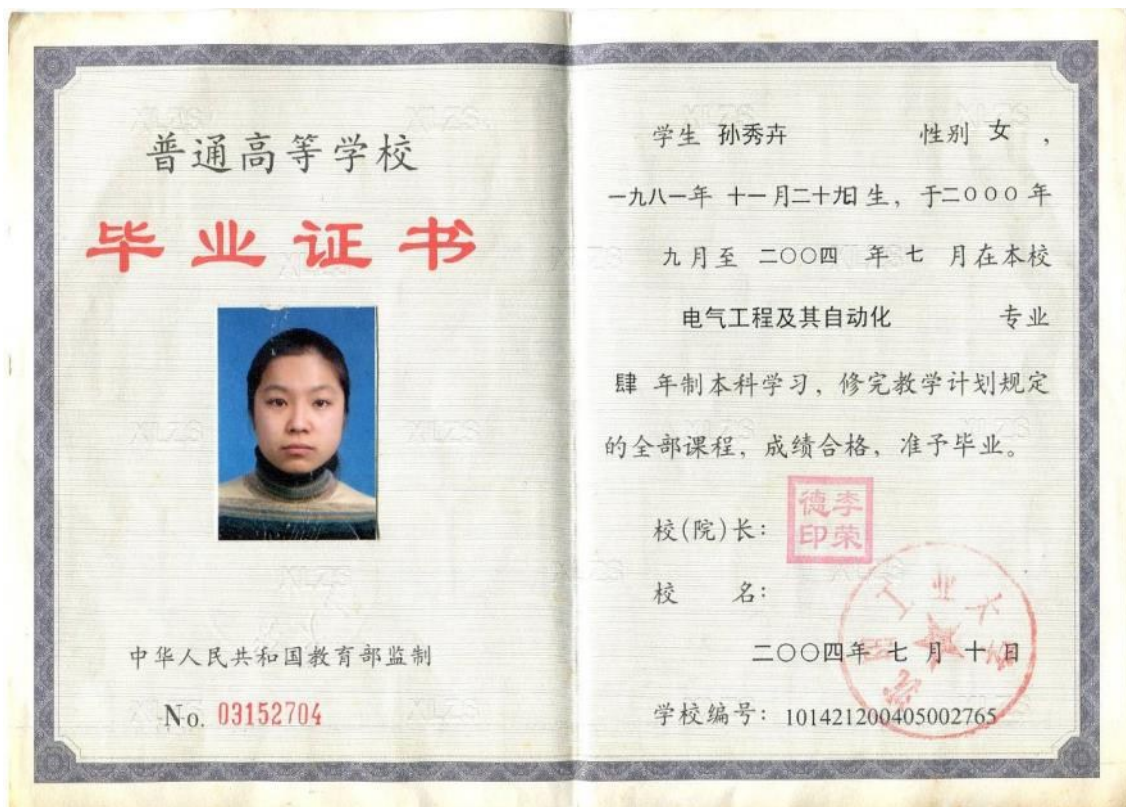 普通高等学校
毕业证书
中华人民共和国教育部监制
No. 03152704
学生 孙秀卉 性别 女 ,
一九八一年 十一月二十九日生, 于二〇〇〇年
九月至 二〇〇四 年 七 月在本校
电气工程及其自动化 专业
肆 年制本科学习, 修完教学计划规定
的全部课程, 成绩合格, 准予毕业。
校(院)长:
李荣德印
校 名:
沈阳工业大学
二〇〇四年 七 月 十 日
学校编号: 101421200405002765
XLZS